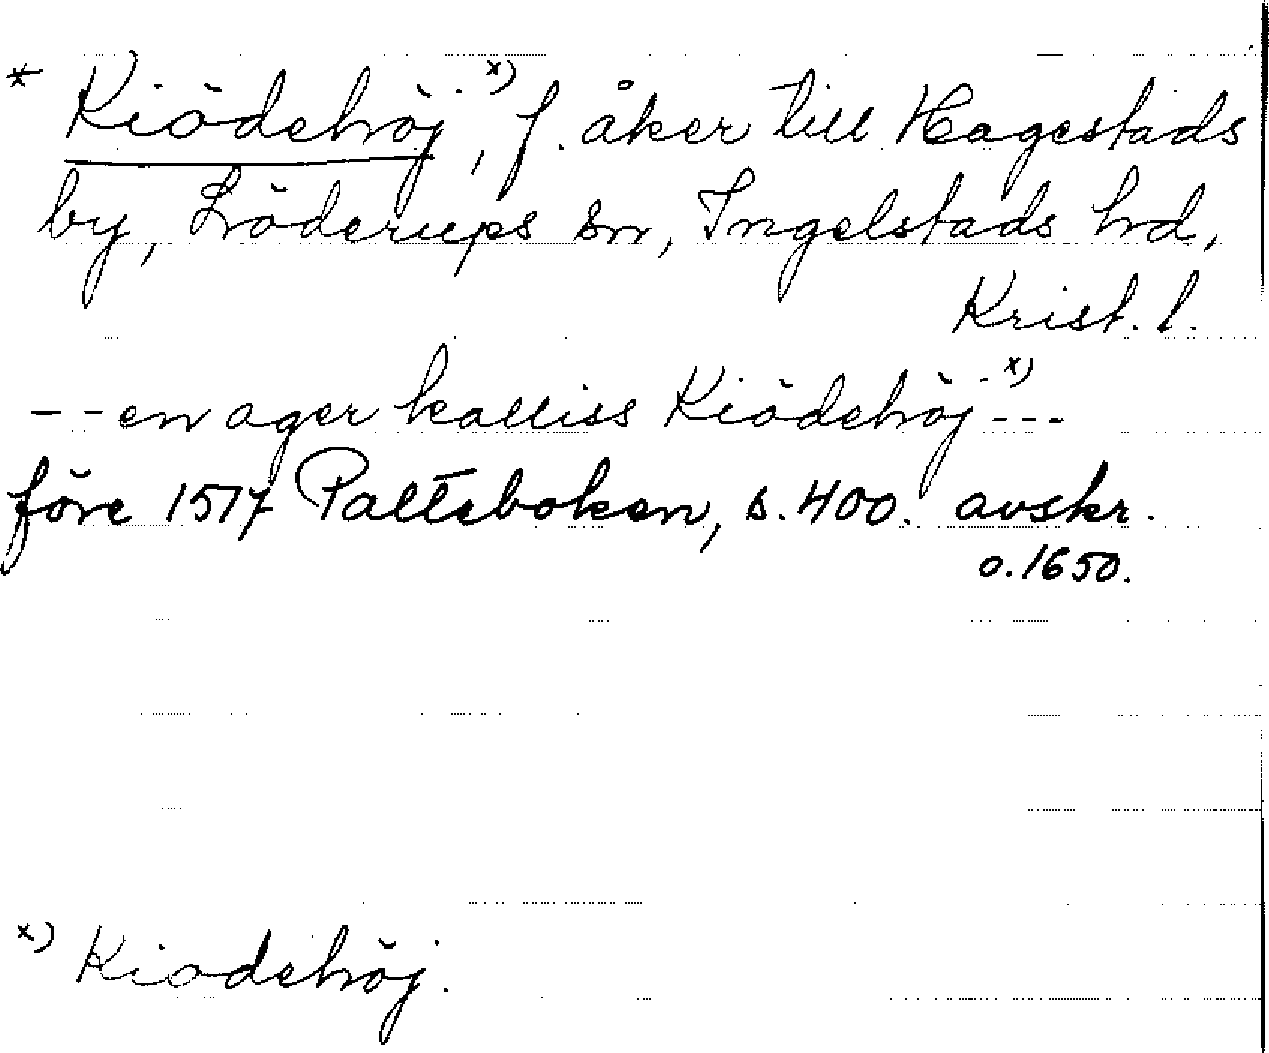 * Kiödehöj x), f. åker till Hagestads
by, Löderups sn, Ingelstads hd,
Krist. l.
- - en ager kalliss Kiödehöj x) - - -
före 1517 Palteboken, s. 400. avskr.
o. 1650.
x) Kiodehöj.